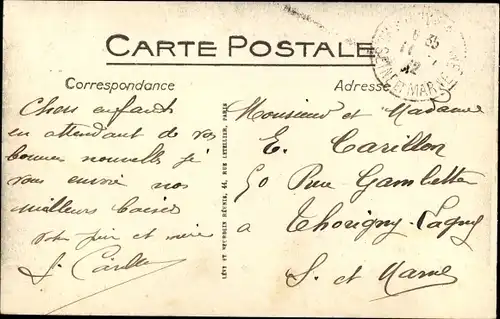 CARTE POSTALE
6 35
11
12
SEINE ET MARNE
Correspondance
Adresse
Chers enfants
en attendant de vos
bonnes nouvelles je
vous envoie nos
meilleurs baisers
votre père et mère
Monsieur et Madame
E. Carillon
50 Rue Gambetta
a Thorigny-Lagny
S. et Marne
LÉVY ET NEURDEIN RÉUNIS, 44, RUE LETELLIER, PARIS